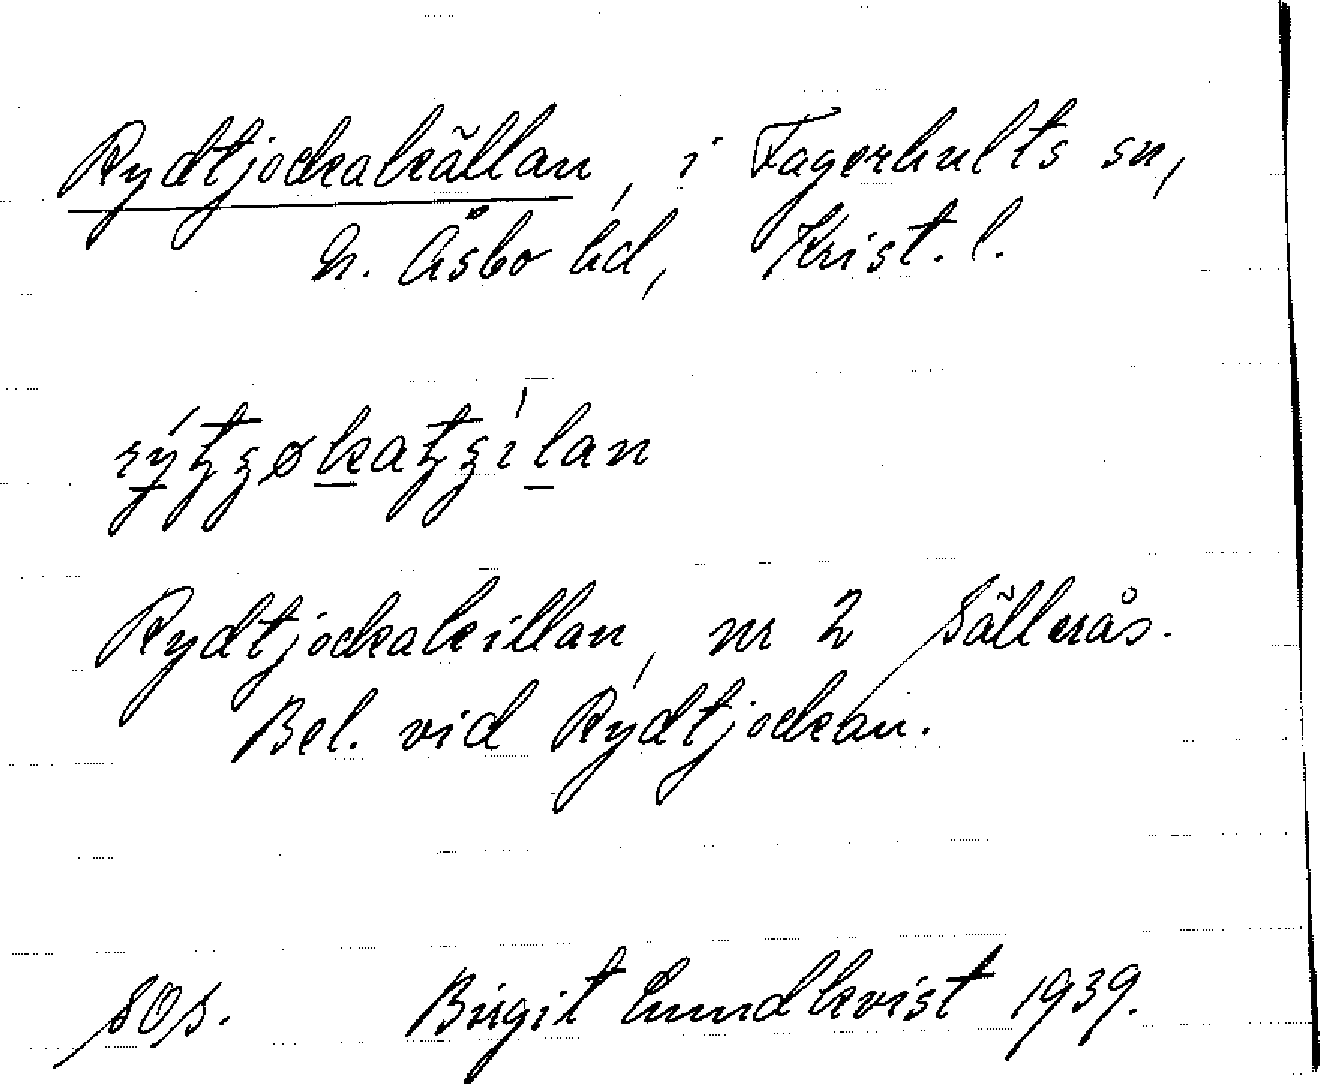 Rydtjockakällan, i Fagerhults sn,
N. Åsbo hd, Krist. l.
Rydtjockakillan, nr 2 Sällerås.
Bel. vid Rydtjockan.
Birgit Lundkvist 1939.